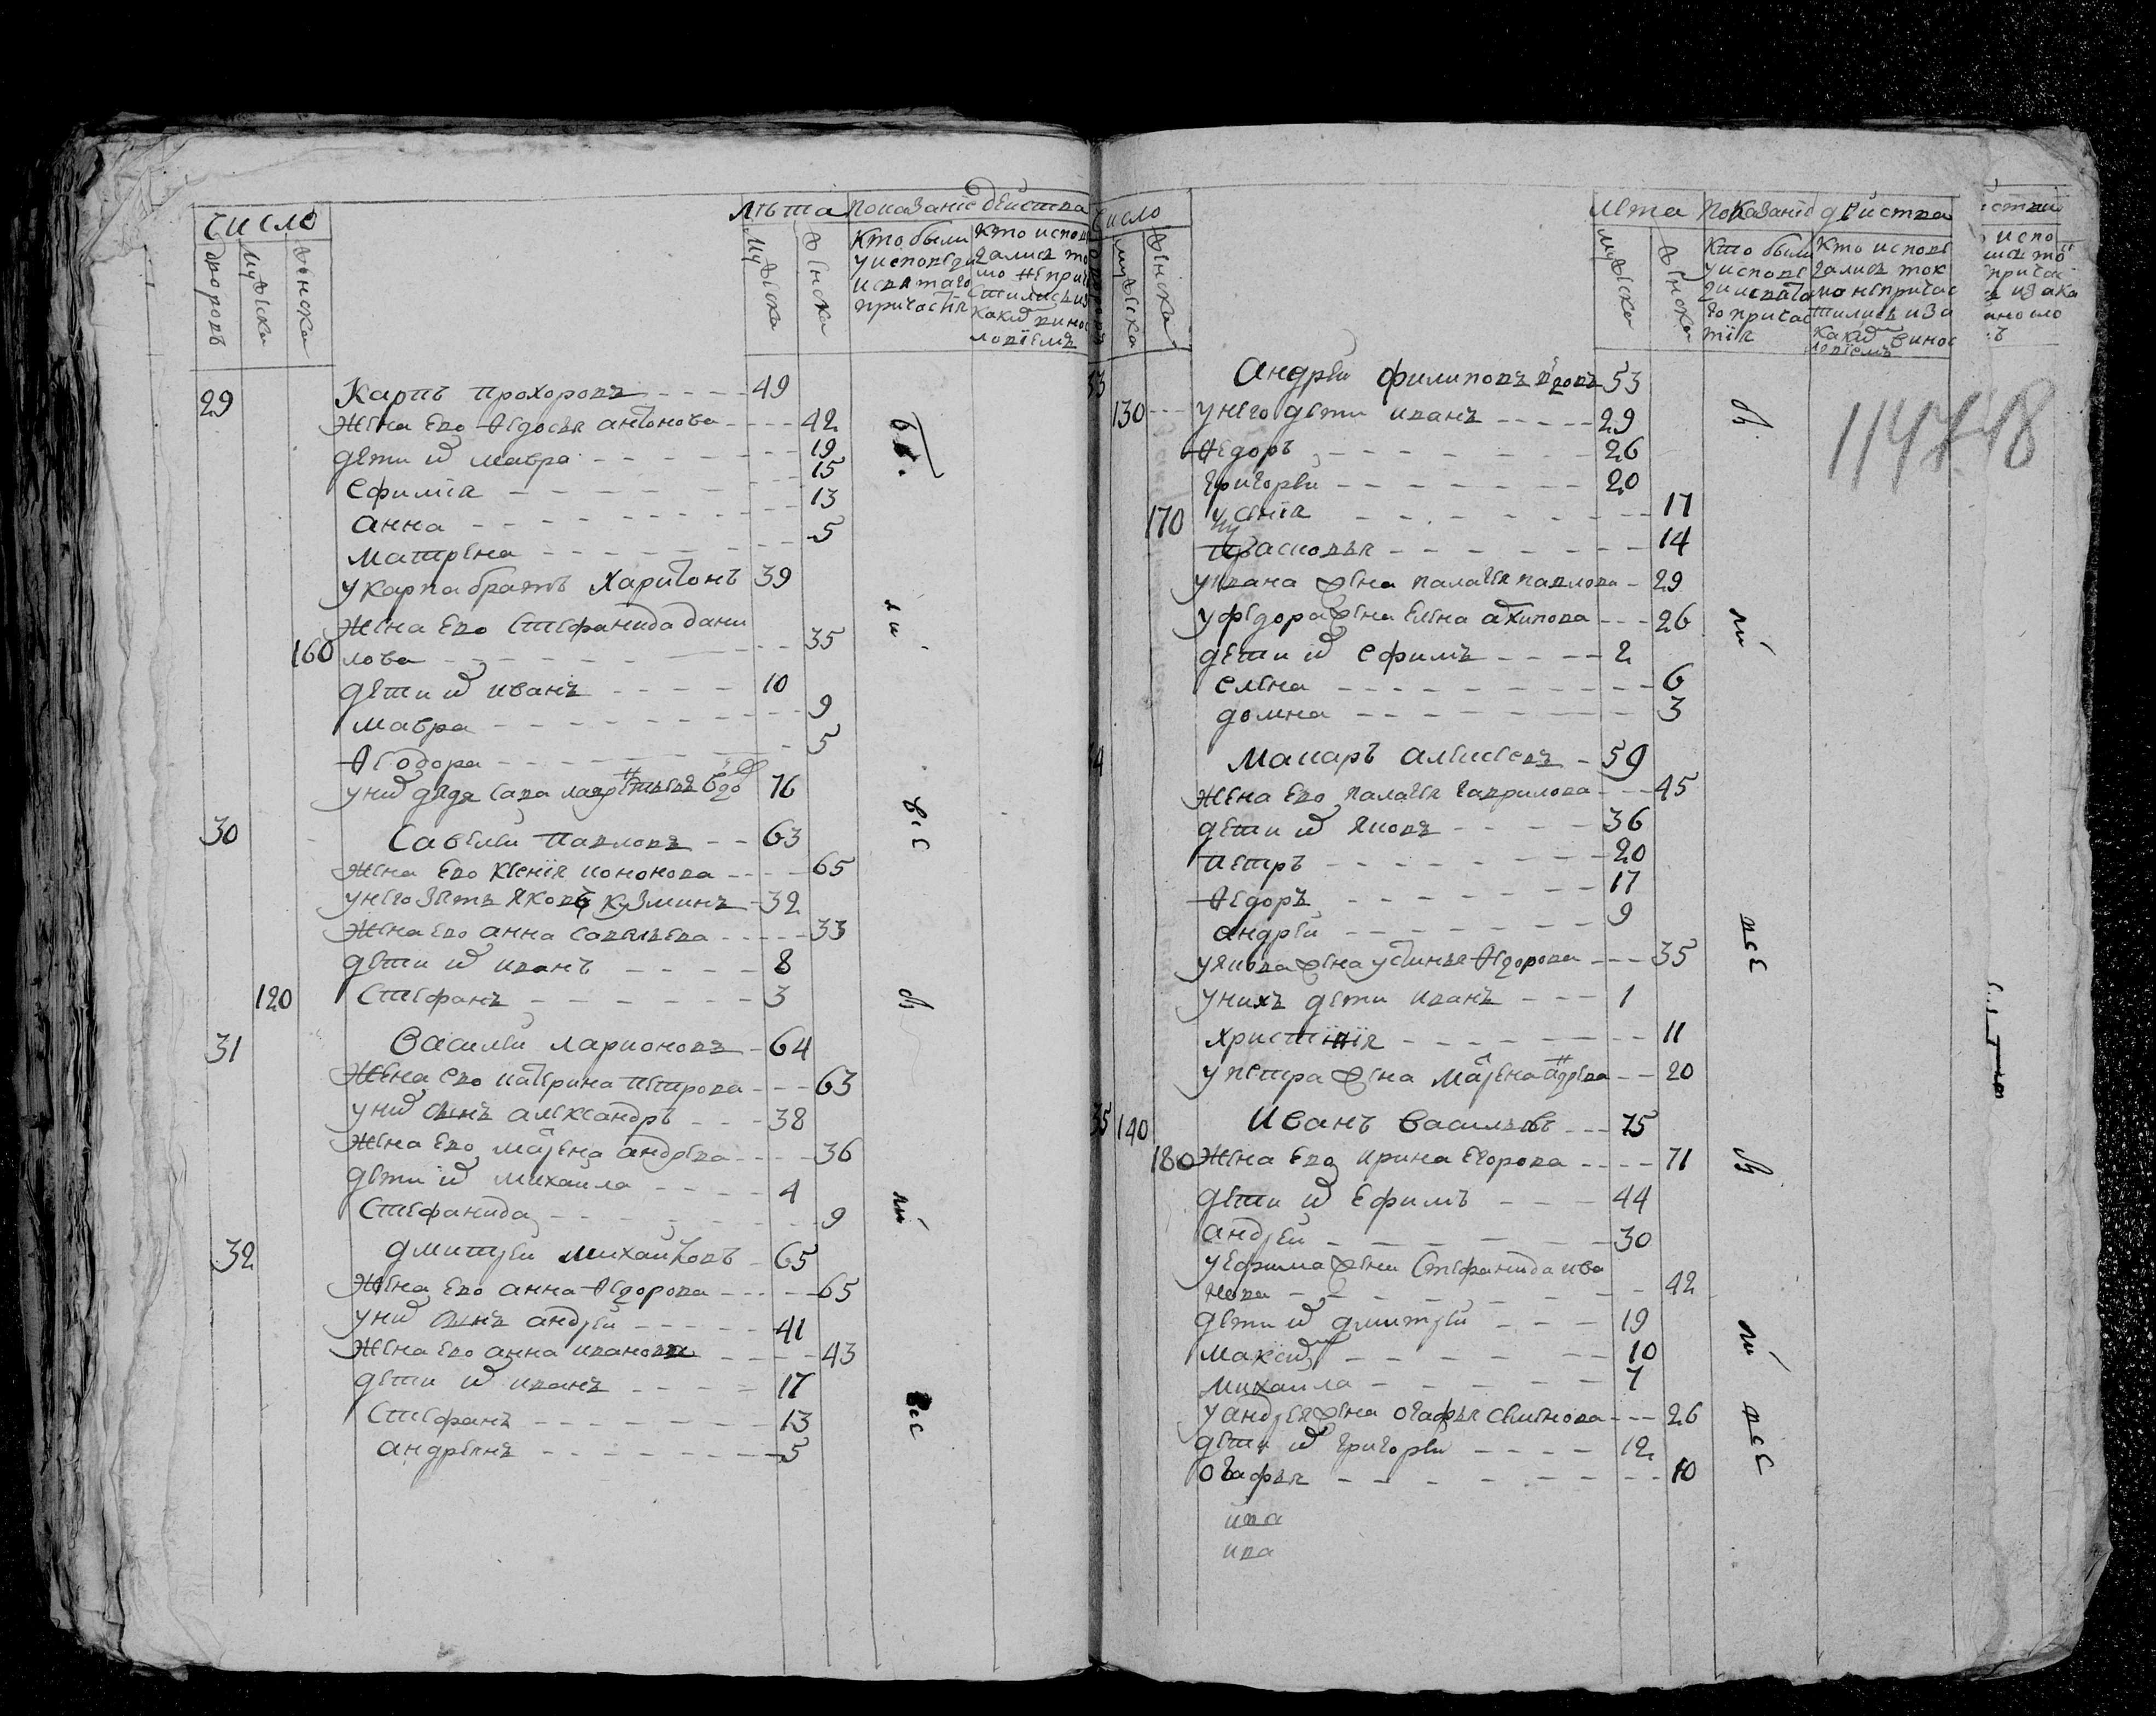 число
дворовъ
мужска
женска
лѣта
показаніе действа
мужска
женска
кто были
у исповеди
и святаго
причастія
кто испов
дались то
мо не прича
стились из
каких винос
ловіемъ
29 Карпъ прохоровъ 49
жена ево Ѳедосья антонова 42
дети их мавра 19
ефимія 15
анна 13
матрена 5
у карпа братъ Харитонъ 39
жена ево Стефанида дани
160 лова 35
дети их иванъ 10
мавра 9
Ѳеодора 5
у них дядя сава вдо 76
30 Савелей павловъ 63
жена ево ксенія кононова 65
у него зять яковъ кузминъ 32
жена ево анна савельева 33
дети их иванъ 8
120 Стефанъ 3
31 Василей ларионовъ 64
жена ево катерина петрова 63
у них сынъ александръ 38
жена ево марена андрева 36
дети их михаила 4
Стефанида 9
32 дмитрей михайловъ 65
жена ево анна Ѳедорова 65
у них сынъ андрей 41
жена ево анна иванова 43
дети их иванъ 17
Стефанъ 13
андреянъ 5
бы
ли
все
бы
ли
все
число
мужска
женска
лета
показаніе действа
мужска
женска
кто были
у исповѣ
ди и свята
го причас
тія
кто исповѣ
дались ток
мо не причас
тились и за
каким винос
ловіемъ
33 Андрей филиповъ вдовъ 53
130 у него дети иванъ 29
Ѳедоръ 26
григорей 20
170 ксенія 17
прасковья 14
у ивана жена палагея павлова 29
у федора жена елена архипова 26
дети их ефимъ 2
елена 6
домна 3
34 Макаръ алексеевъ 59
жена ево палагея гаврилова 45
дети их яковъ 36
петръ 20
Ѳедоръ 17
андрей 9
у якова жена устинья Ѳедорова 35
у нихъ дети иванъ 1
христинія 11
у петра жена марена андрева 20
35 140 Иванъ васильевъ 75
180 жена ево ирина егорова 71
дети их ефимъ 44
андрей 30
у ефима жена Стефанида ива
нова 42
дети их дмитрей 19
максим 10
михаила 7
у андрея жена огафья семенова 26
дети их григорей 12
огафья 10
ива
ива
бы
ли
все
бы
ли
все